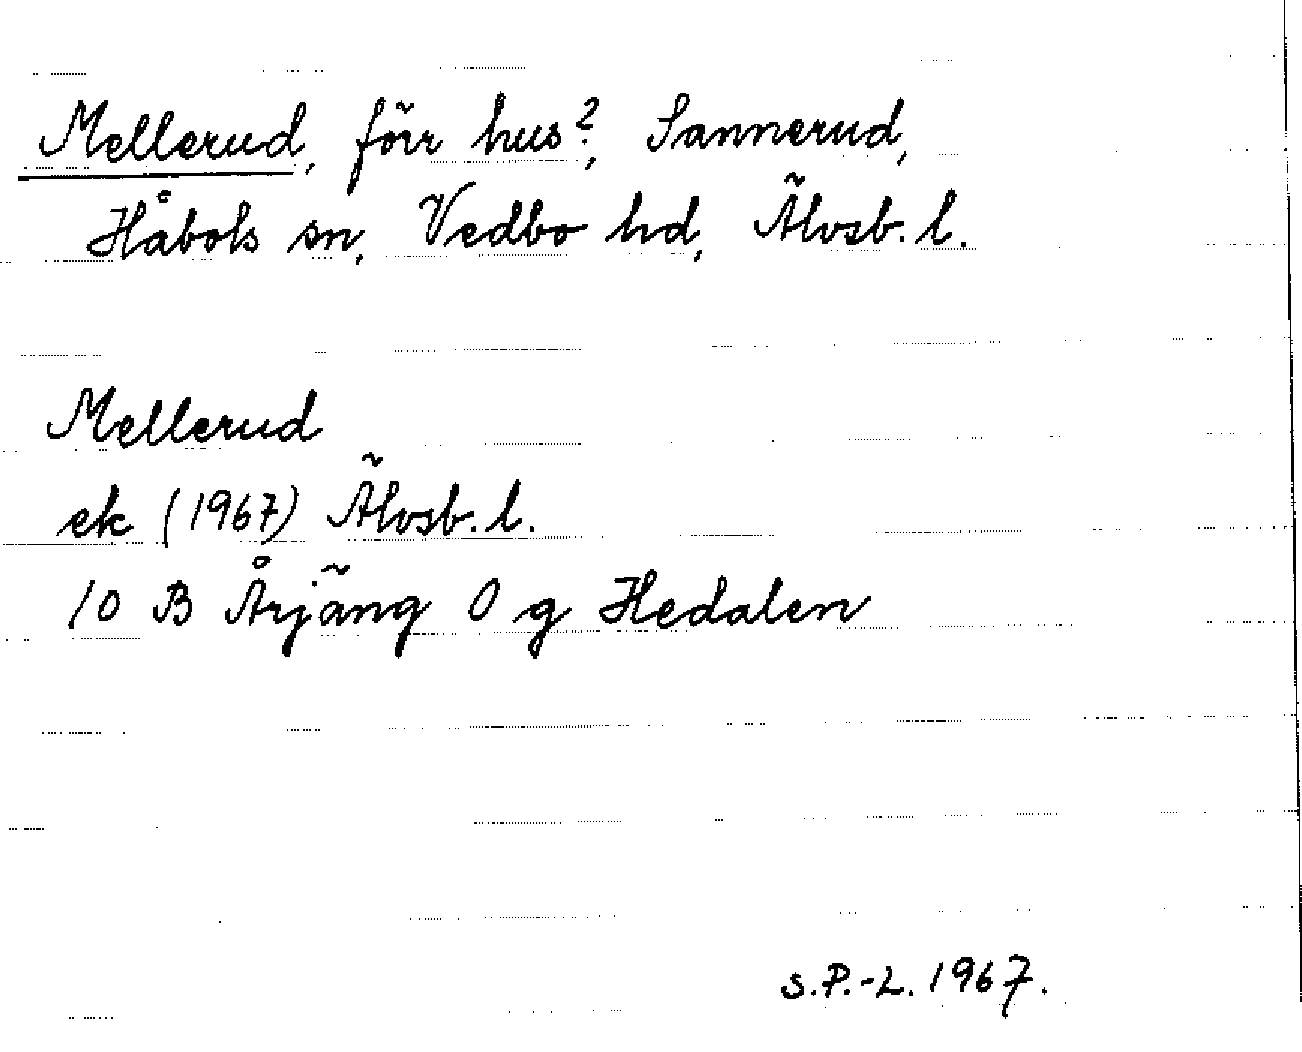 Mellerud, förr hus?, Sannerud,
Håbols sn, Vedbo hd, Älvsb. l.
Mellerud
ek (1967) Älvsb. l.
10 B Årjäng 0 g Hedalen
S.P.-L. 1967.